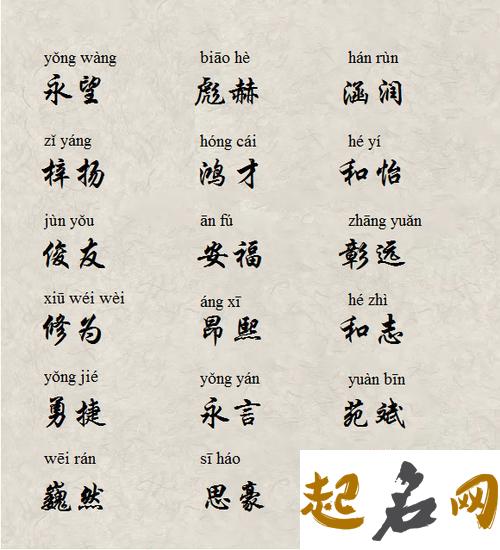 yǒng wàng biāo hè hán rùn
永望 彪赫 涵润
zǐ yáng hóng cái hé yí
梓扬 鸿才 和怡
jùn yǒu ān fú zhāng yuǎn
俊友 安福 彰远
xiū wéi wèi áng xī hé zhì
修为 昂熙 和志
yǒng jié yǒng yán yuàn bīn
勇捷 永言 苑斌
wēi rán sī háo
巍然 思豪
起名网